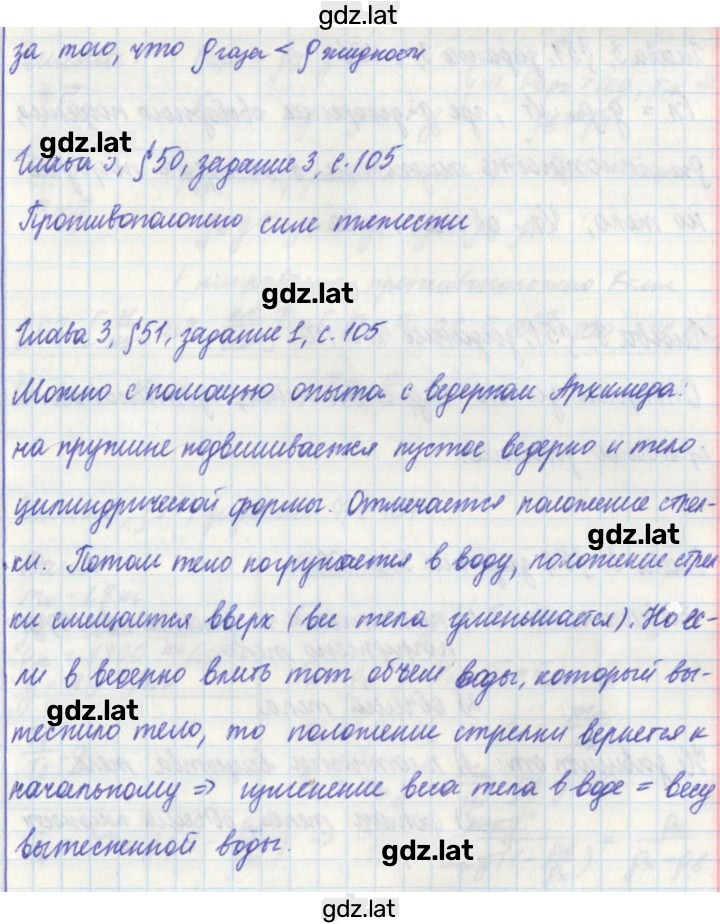 gdz.lat
за того, что ρ газа < ρ жидкости
gdz.lat
Глава 3, §50, задание 3, с. 105
Противоположно силе тяжести
gdz.lat
Глава 3, §51, задание 1, с. 105
Можно с помощью опыта с ведерком Архимеда:
на пружине подвешивается пустое ведерко и тело
цилиндрической формы. Отмечается положение стрел-
gdz.lat
ки. Потом тело погружается в воду, положение стрел-
ки смещается вверх (вес тела уменьшается). Но ес-
ли в ведерко влить тот объем воды, который вы-
gdz.lat
теснило тело, то положение стрелки вернется к
начальному => изменение веса тела в воде = весу
вытесненной воды.
gdz.lat
gdz.lat